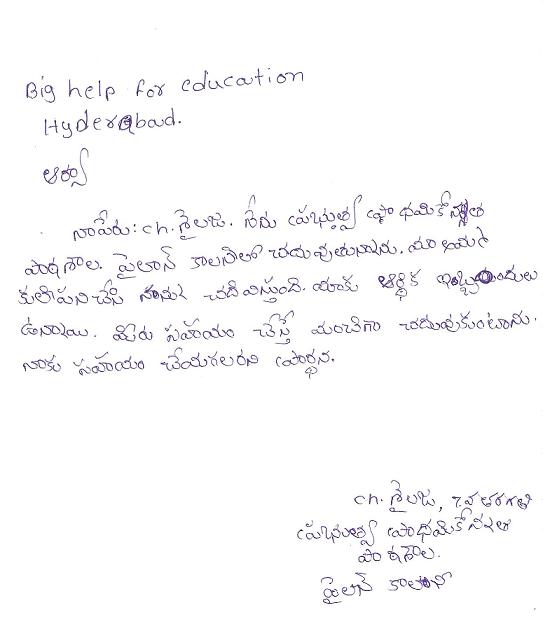 Big help for education
Hyderabad.
ఆర్యా
నాపేరు: ch. శైలజ. నేను ప్రభుత్వ ప్రాధమికోన్నత
పాఠశాల. పైలాన్ కాలనిలో చదువుతున్నాను. మా అమ్మ
కులిపని చేసి నాన్ను చదివిస్తుంది. మాకు ఆర్థిక ఇబ్బందులు
ఉన్నాయి. మీరు సహయం చేస్తే మంచిగా చదువుకుంటాను.
నాకు సహయం చేయగలరని ప్రార్థన.
ch. శైలజ, 7వ తరగతి
ప్రభుత్వ ప్రాధమికోన్నత
పాఠశాల.
పైలాన్ కాలని